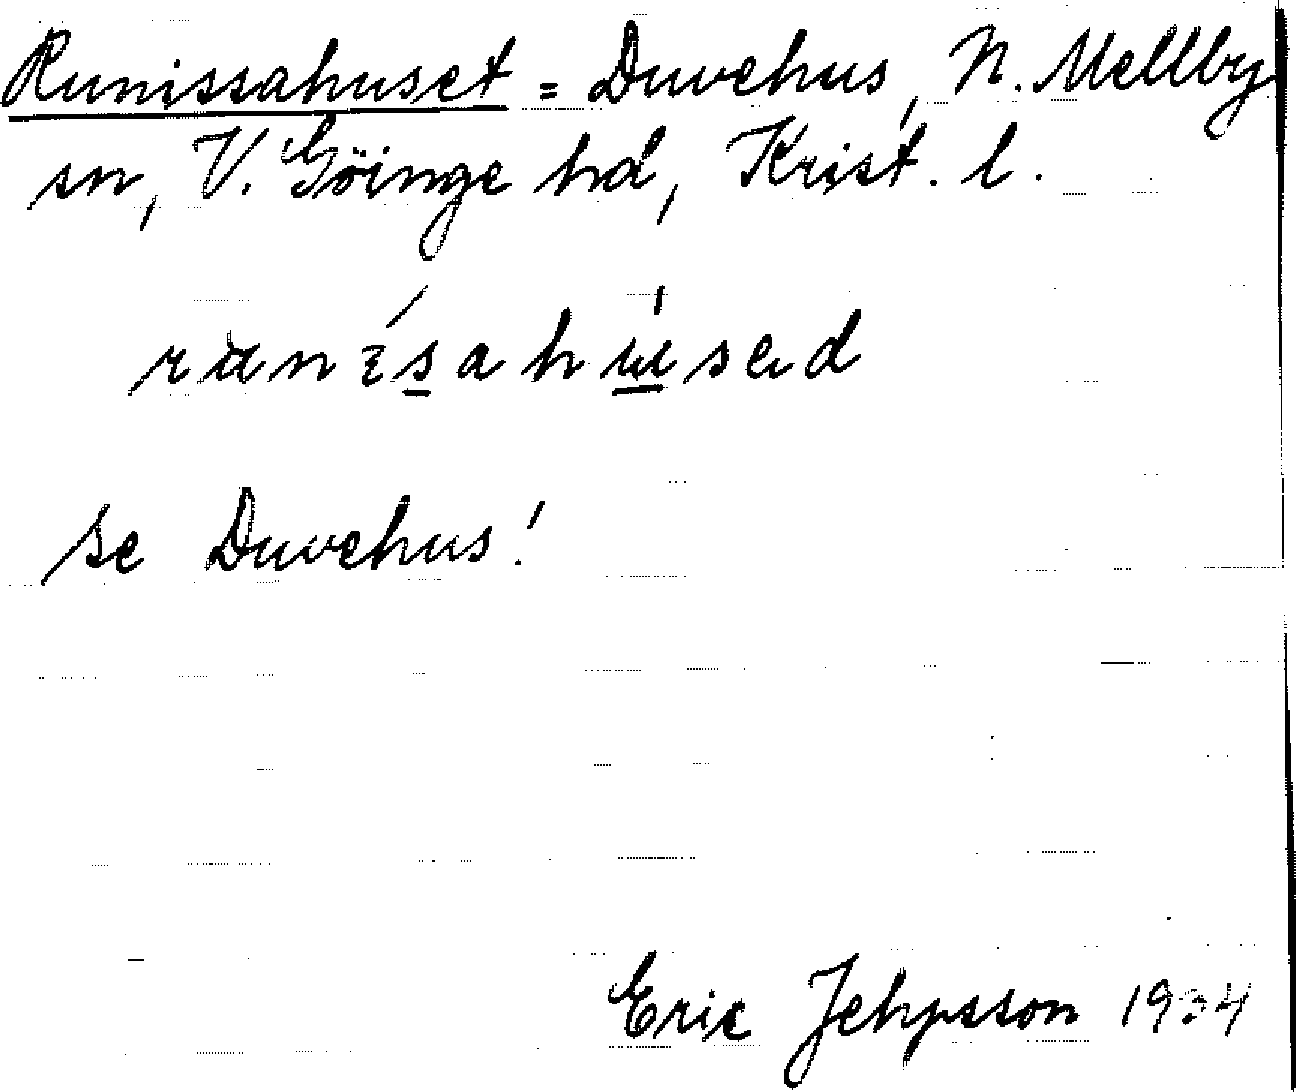 Runissahuset = Duvehus, N. Mellby
sn, V. Göinge hd, Krist. l.
se Duvehus!
Eric Jehpsson 1934